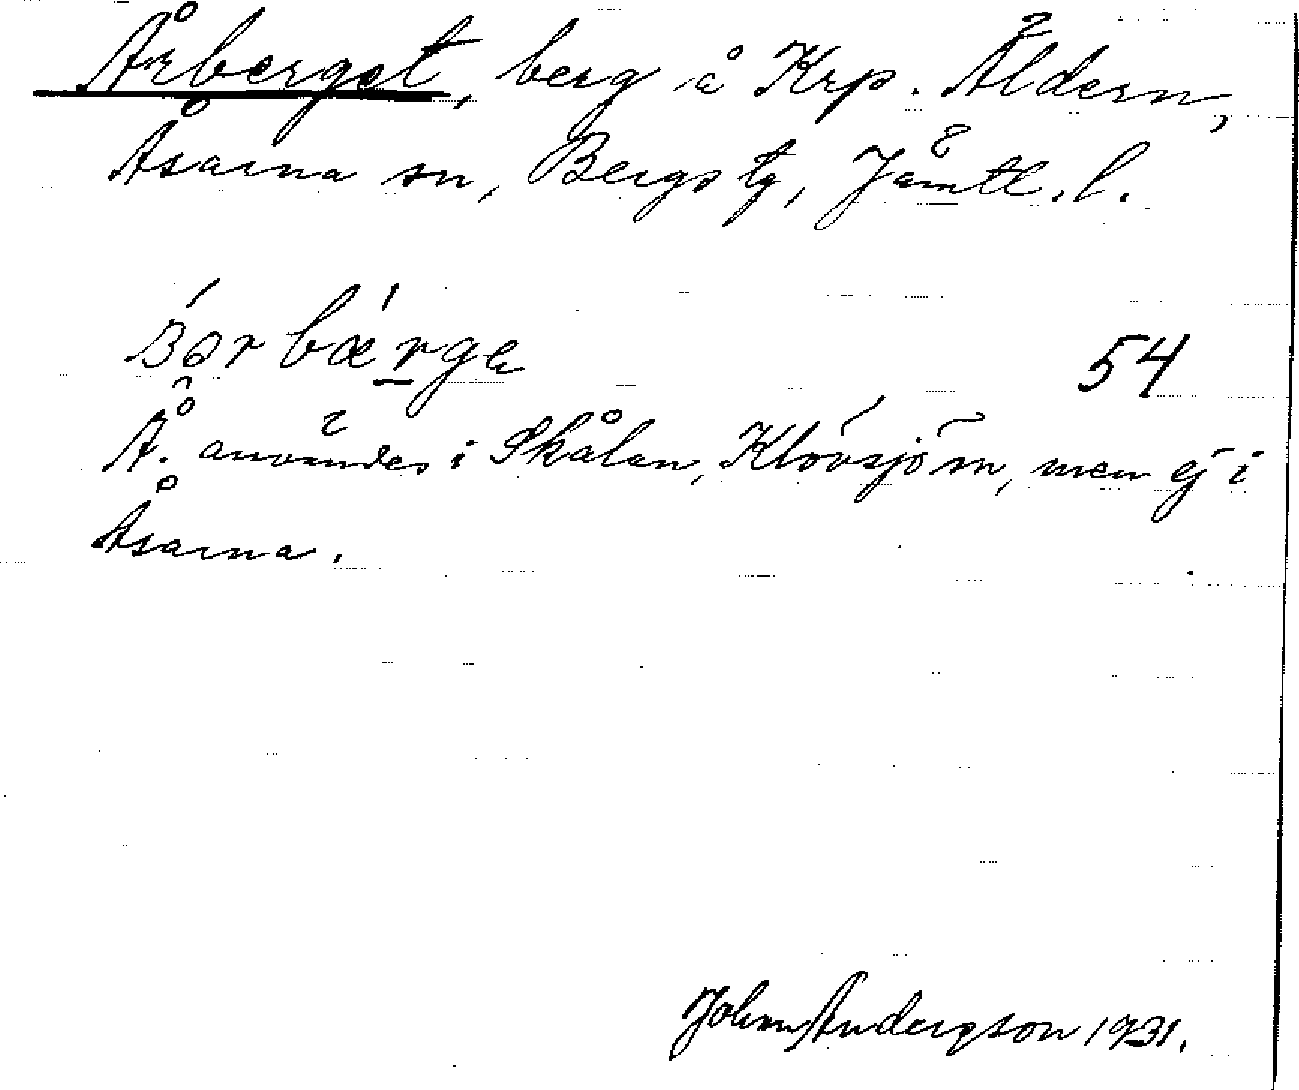 Årberget, berg å Krp. Åldern,
Åsarna sn, Bergs tg, Jämtl. l.
54
Å. användes i Skålan, Klövsjö sn, men ej i
Åsarna.
John Andersson 1931.